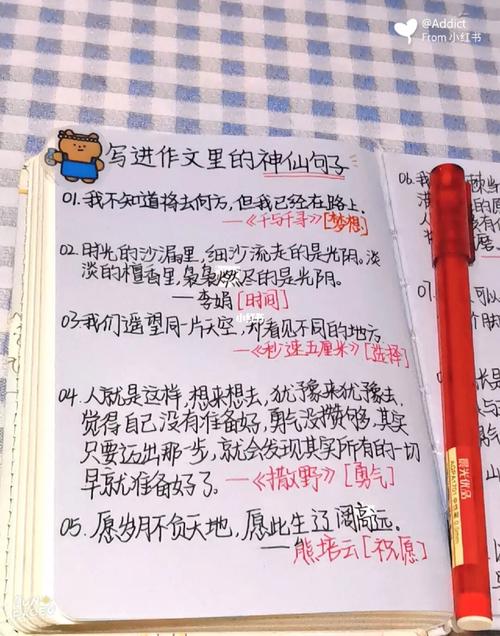 @Addict
From 小红书
写进作文里的神仙句子
01.我不知道将去何方，但我已经在路上。
—《千与千寻》[梦想]
02.时光的沙漏里，细沙流走的是光阴。淡
淡的檀香里，袅袅燃尽的是光阴。
—李娟[时间]
小红书
03.我们遥望同一片天空，却看见不同的地方
—《秒速五厘米》[选择]
04.人就是这样，想来想去，犹豫来犹豫去，
觉得自己没有准备好，勇气没攒够，其实
只要迈出那一步，就会发现其实所有的一切
早就准备好了。—《撒野》[勇气]
05.愿岁月不负大地，愿此生辽阔高远。
—熊培云[祝愿]
06.我
07.
晨光优品